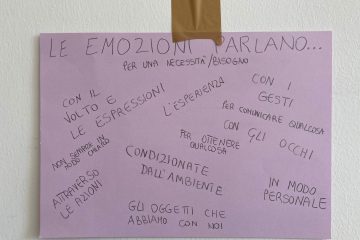 LE EMOZIONI PARLANO...
PER UNA NECESSITÀ/BISOGNO
CON IL
VOLTO E
LE ESPRESSIONI
L'ESPERIENZA
CON I
GESTI
PER COMUNICARE QUALCOSA
CON GLI OCCHI
NON SEMPRE IN
MODO CHIARO
PER OTTENERE
QUALCOSA
CONDIZIONATE
DALL'AMBIENTE
ATTRAVERSO
LE AZIONI
IN MODO
PERSONALE
GLI OGGETTI CHE
ABBIAMO CON NOI